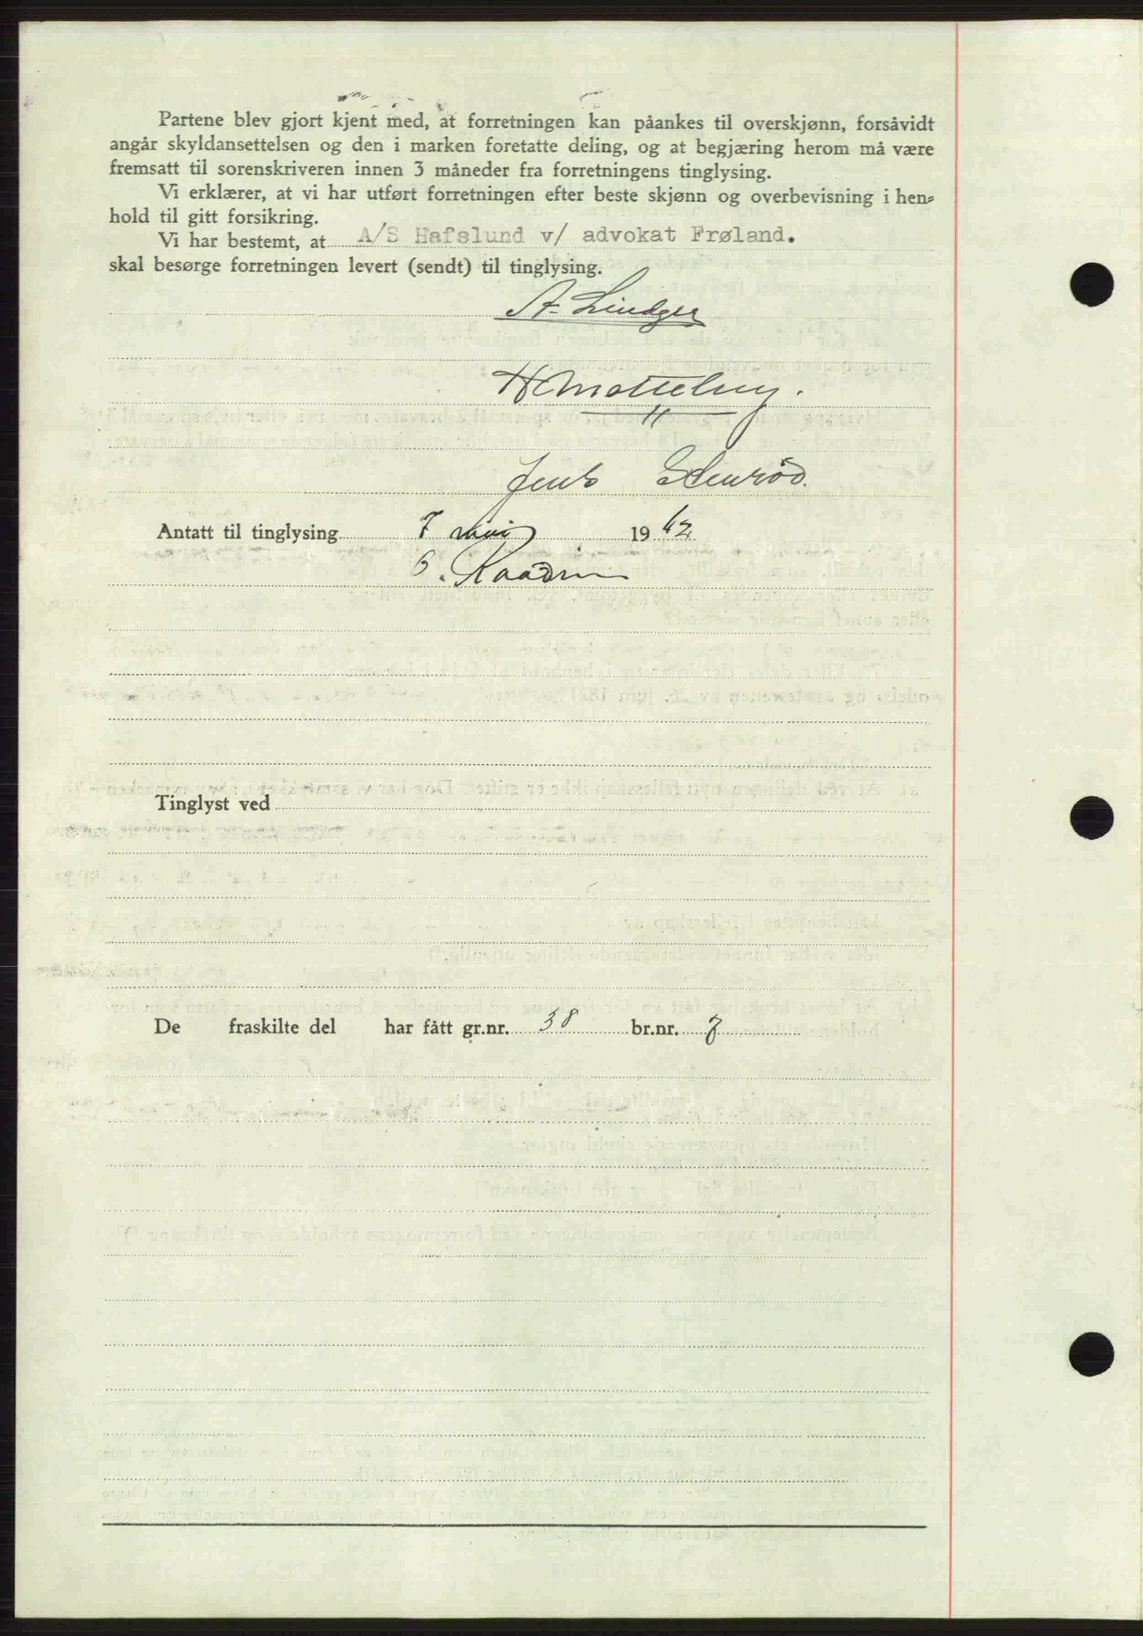 Partene blev gjort kjent med, at forretningen kan påankes til overskjønn, forsåvidt
angår skyldansettelsen og den i marken foretatte deling, og at begjæring herom må være
fremsatt til sorenskriveren innen 3 måneder fra forretningens tinglysing.
Vi erklærer, at vi har utført forretningen efter beste skjønn og overbevisning i hen-
hold til gitt forsikring.
Vi har bestemt, at A/S Hafslund v/ advokat Frøland.
skal besørge forretningen levert (sendt) til tinglysing.
A. Lindger
Jens
Antatt til tinglysing 7 mai 1942
Tinglyst ved
De fraskilte del har fått gr.nr. 38 br.nr. 7